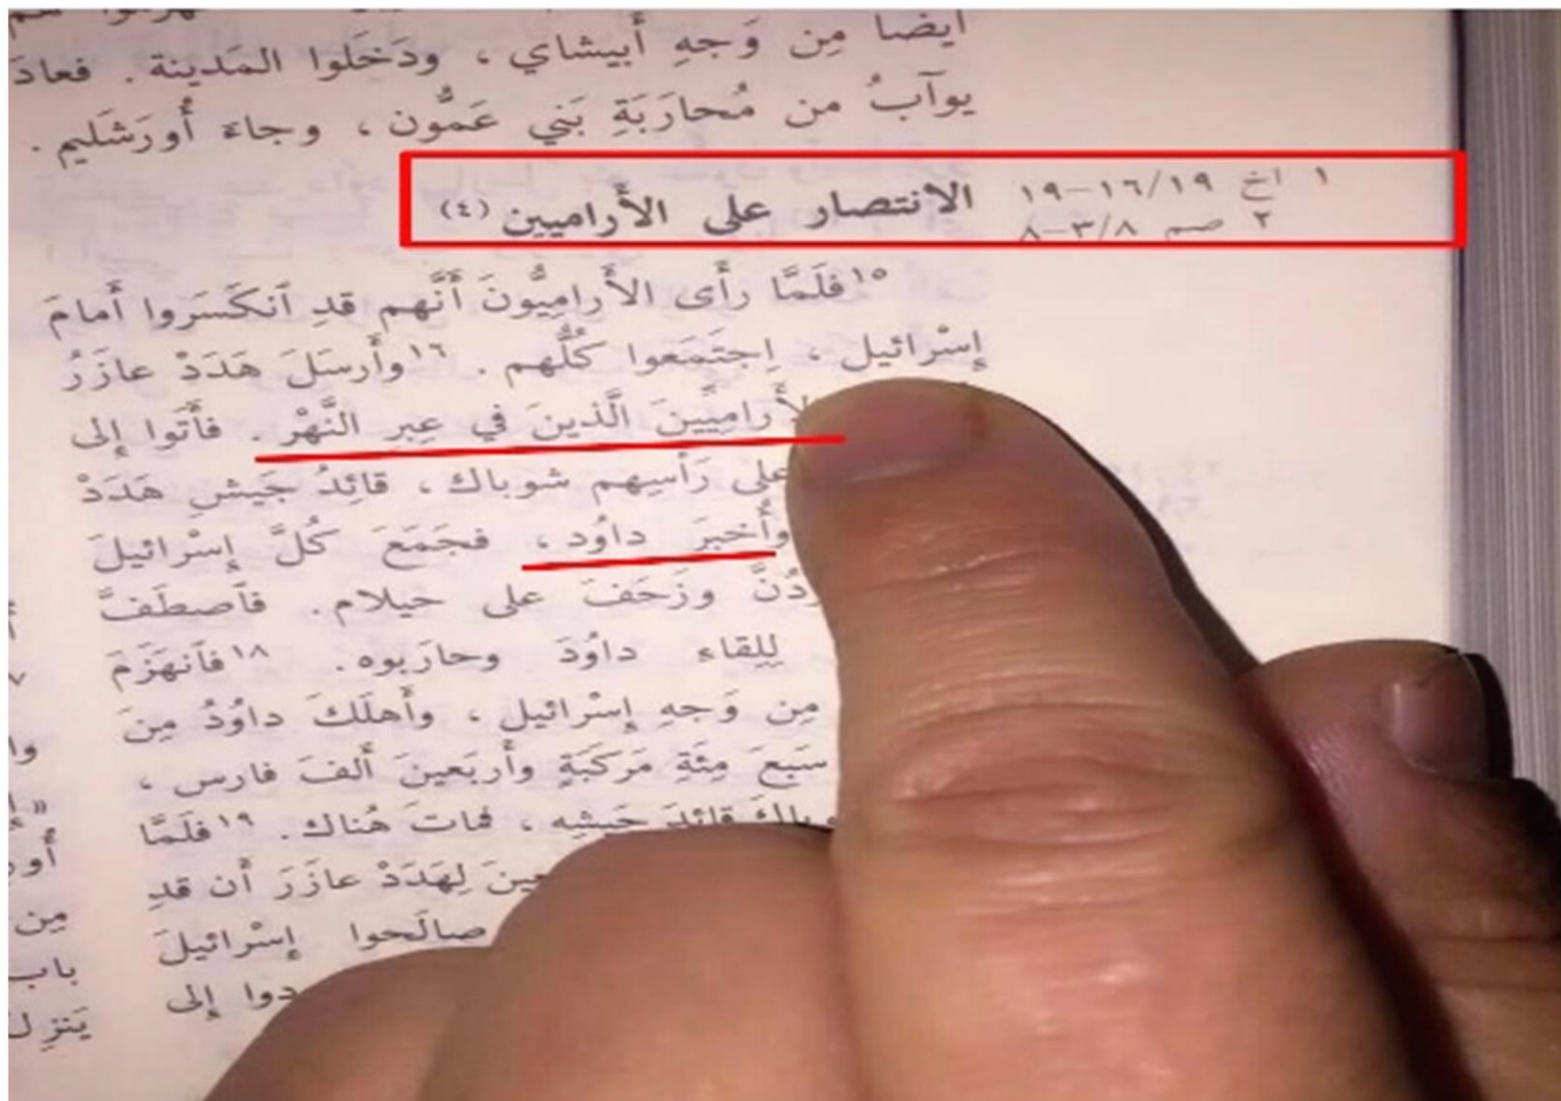 أيضًا مِن وَجهِ أَبيشاي ، ودَخَلوا المَدينة . فعادَ
يوآبُ من مُحارَبَةِ بَني عَمُّون ، وجاءَ أُورَشَليم .
١ اخ ١٩/١٦-١٩
٢ صم ٨/٣-٨
الانتصار على الأَراميين (٤)
١٥فلَمَّا رأَى الأَرامِيُّونَ أَنَّهم قدِ ٱنكَسَروا أَمامَ
إِسْرائيل ، اِجتَمَعوا كُلُّهم . ١٦وأَرسَلَ هَدَدْ عازَرُ
الأَرامِيِّينَ الَّذينَ في عِبرِ النَّهْر . فأَتَوا إِلى
على رَأسِهم شوباك ، قائِدُ جَيشِ هَدَدْ
وأُخبِرَ داوُد ، فجَمَعَ كُلَّ إِسْرائيلَ
وزَحَفَ على حيلام . فٱصطَفَّ
لِلِقاءِ داوُدَ وحارَبوه . ١٨فٱنهَزَمَ
مِن وَجهِ إِسْرائيل ، وأَهلَكَ داوُدُ مِنَ
سَبعَ مِئَةِ مَركَبَةٍ وأَربَعينَ أَلفَ فارس ،
قائِدَ جَيشِه ، فماتَ هُناك . ١٩فلَمَّا
لِهَدَدْ عازَرَ أَن قدِ
صالَحوا إِسْرائيلَ
إِلى
وا
أُور
مِن
باب
يَنزِل